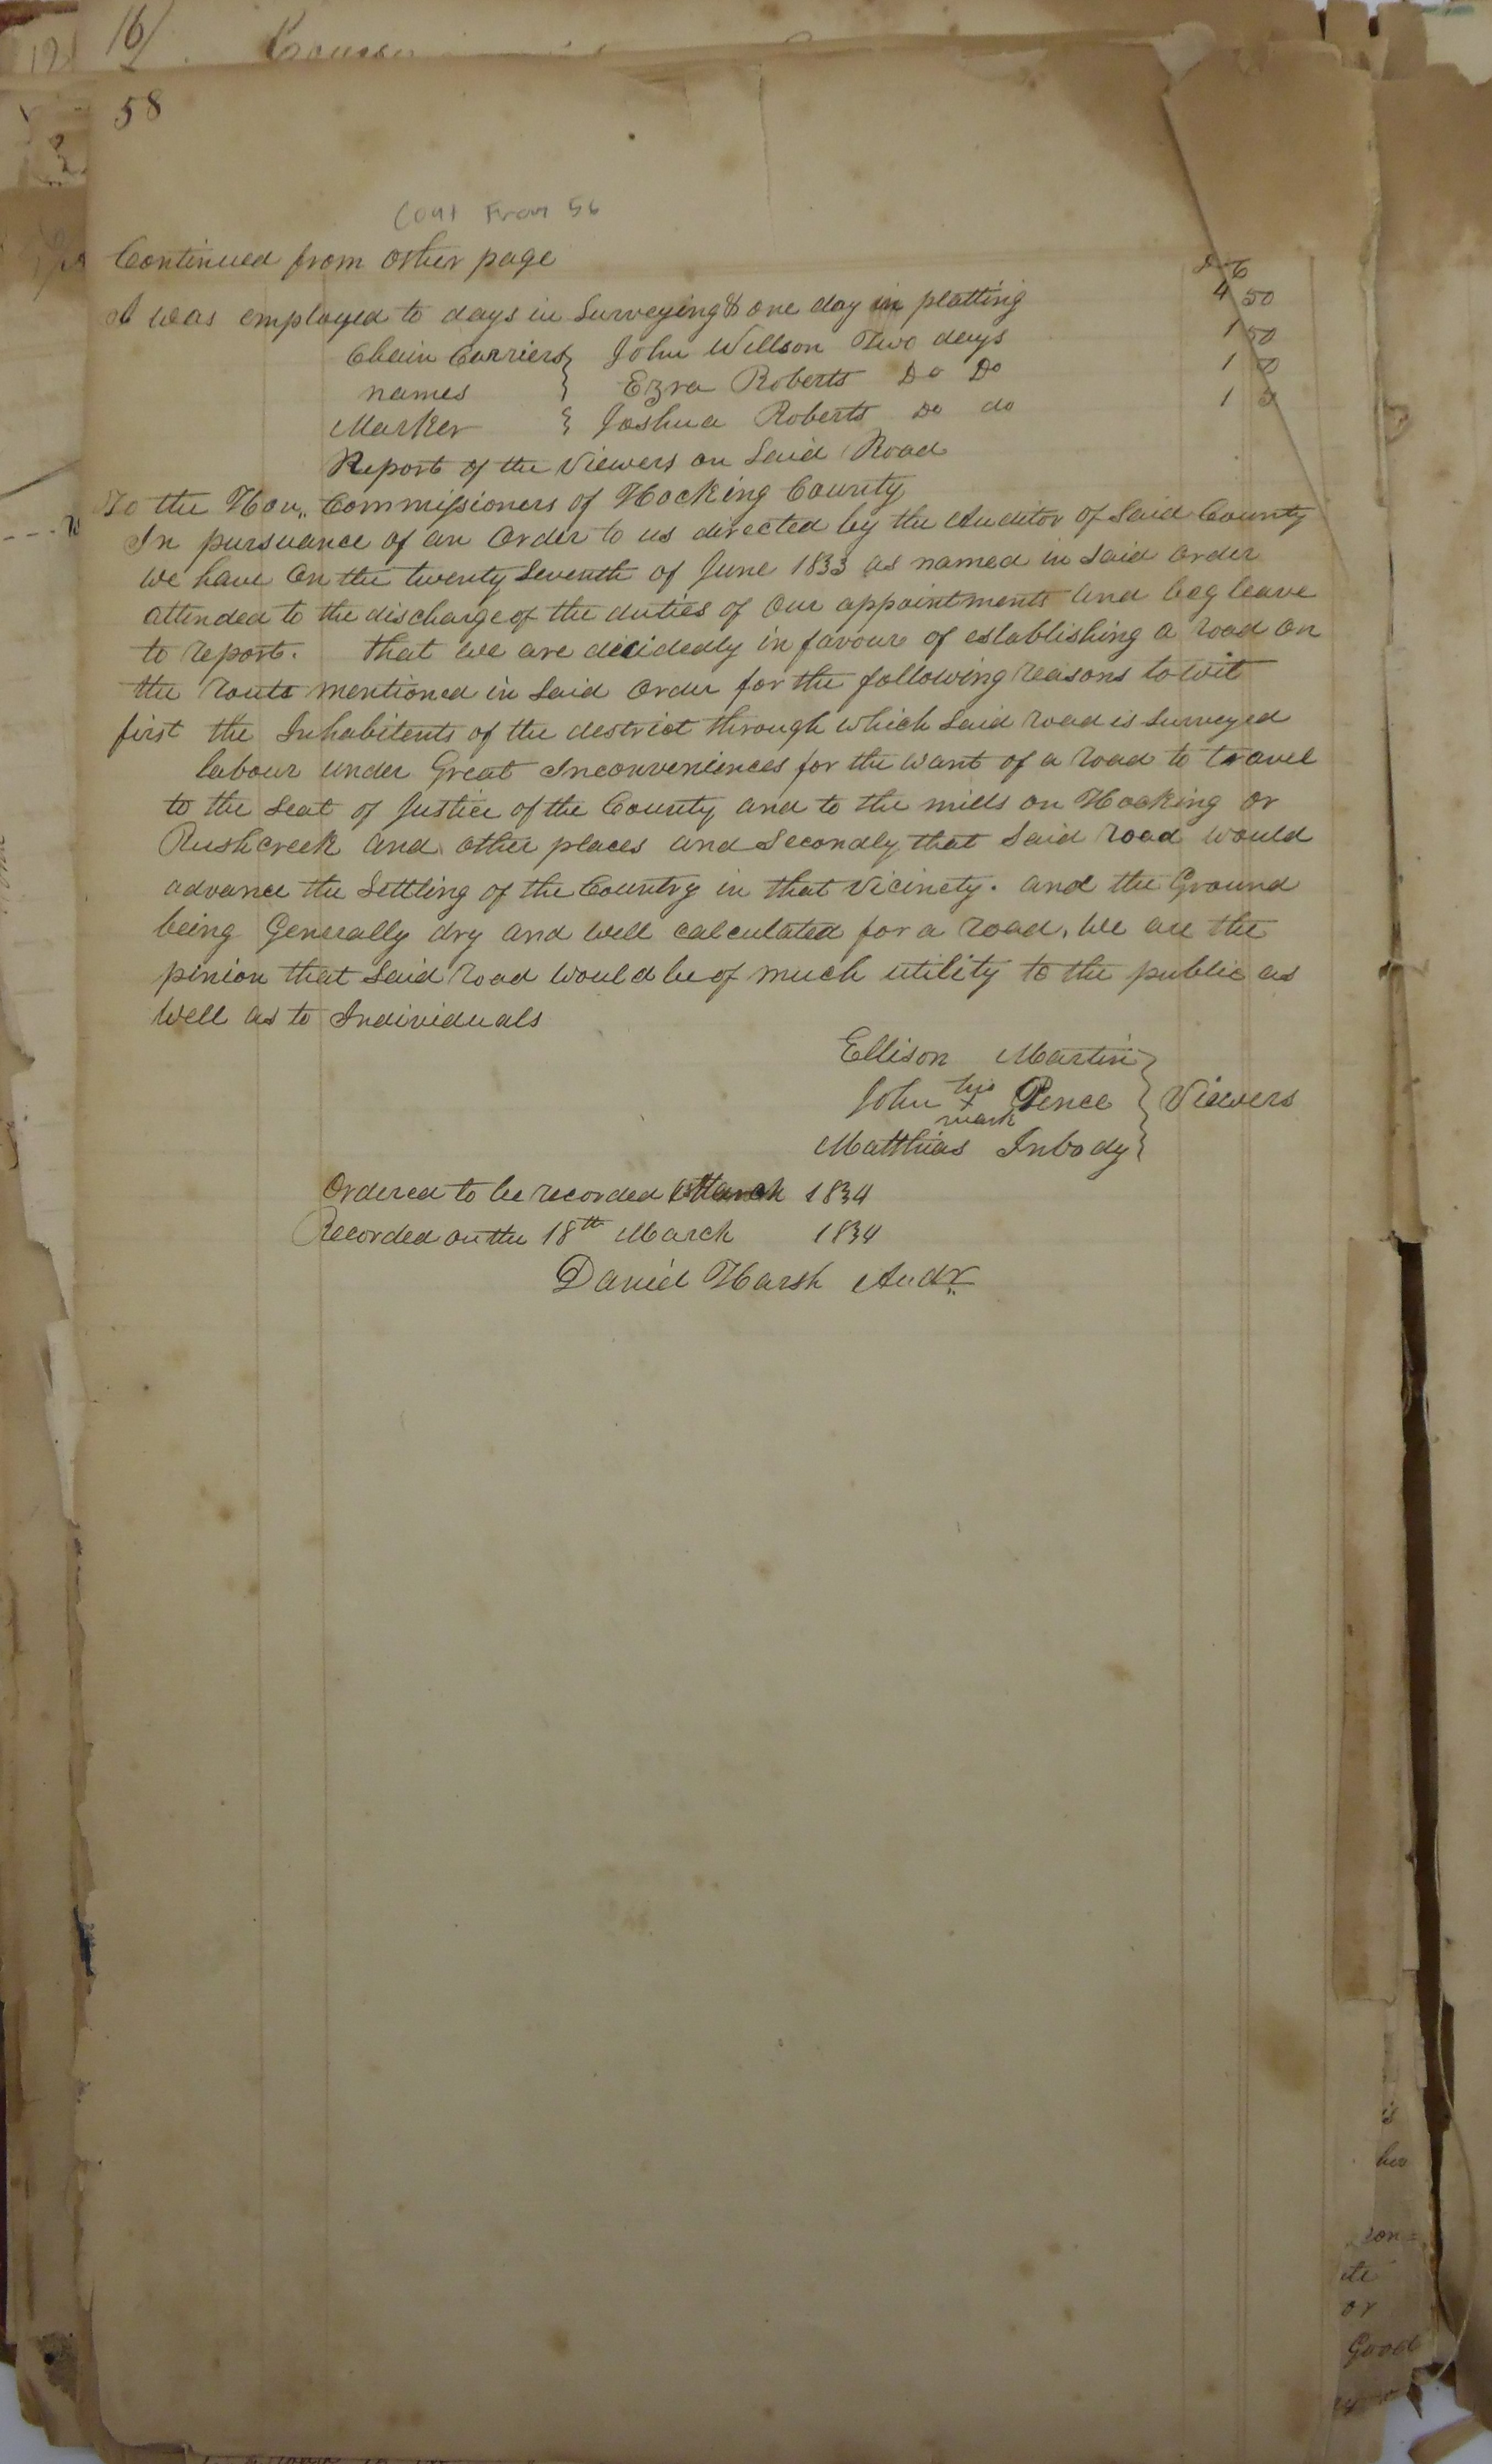 16
58
Cont From 56
Continued from other page
D C
I was employed to days in Surveying & one day in platting 4 50
Chain Carriers } John Willson Two days 1 50
names } Ezra Roberts Do Do 1
Marker } Joshua Roberts Do do 1
Report of the Viewers on Said Road
To the Hon,, Commissioners of Hocking County
In pursuance of an Order to us directed by the Auditor of Said County
We have On the twenty Seventh of June 1833 as named in Said Order
attended to the discharge of the duties of Our appointments And beg leave
to report. that We are decidedly in favour of establishing a road on
the route mentioned in Said Order for the following reasons to wit
first the Inhabitents of the destrict through which Said road is Surveyed
labour under Great Inconveniences for the want of a road to travel
to the Seat of Justice of the County and to the mills on Hocking or
Rushcreek and other places and Secondly that Said road would
advance the Settling of the Country in that Vicinety. and the Ground
being Generally dry and Well calculated for a road, We are the
pinion that Said road Would be of much utility to the public as
Well as to Individuals
Ellison Martin }
John his x mark Pence } Viewers
Matthias Inbody }
Ordered to be recorded March 1834
Recorded on the 18th March 1834
David Harsh Audr
is
her
son=
ite
or
Good